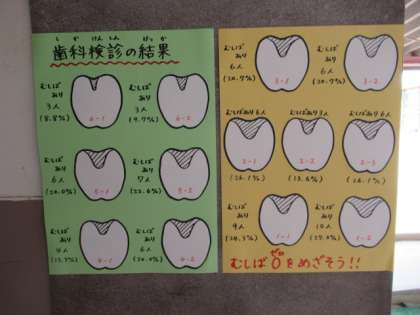 しかけんしん けっか
歯科検診の結果
むしば
あり
3人
(8.8%)
6-1
むしば
あり
3人
(9.7%)
6-2
むしば
あり
6人
5-1
むしば
あり
7人
5-2
むしば
あり
4人
4-1
むしば
あり
6人
4-2
むしば
あり
6人
3-1
むしば
あり
6人
3-2
むしばあり6人
2-1
むしばあり3人
2-2
むしばあり6人
2-3
むしば
あり
9人
1-1
むしば
あり
10人
1-2
ゼロ
むしば0をめざそう!!